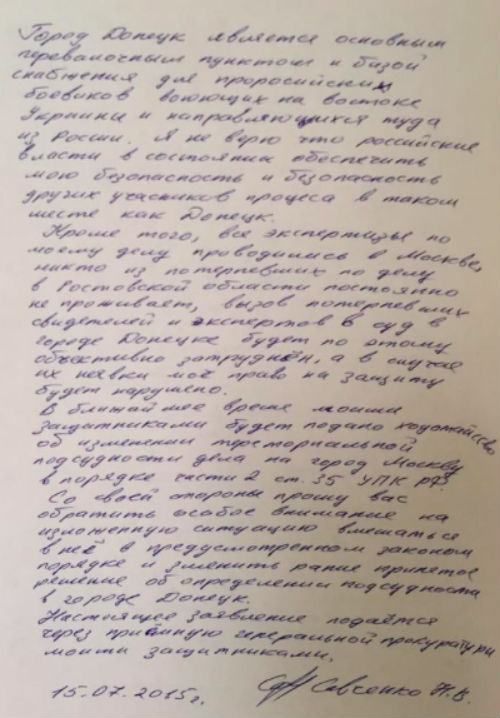 Город Донецк является основным
перевалочным пунктом и базой
снабжения для проросийских
боевиков воюющих на востоке
Украины и направляющихся туда
из России. Я не верю что российские
власти в состоянии обеспечить
мою безопасность и безопасность
других учасников процеса в таком
месте как Донецк.
Кроме того, все экспертизы по
моему делу проводились в Москве,
никто из потерпевших по делу
в Ростовской области постоянно
не проживает, вызов потерпевших
свидетелей и экспертов в суд в
городе Донецке будет по этому
объективно затруднён, а в случае
их неявки моё право на защиту
будет нарушено.
В ближайшее время моими
защитниками будет подано ходотайство
об изменении територпальной
подсудности дела на город Москву
в порядке части 2 ст. 35 УПК РФ.
Со своей стороны прошу вас
обратить особое внимание на
изложенную ситуацию вмешаться
в неё в предусмотренном законом
порядке и зменить рание принятое
решение об определении подсудности
в городе Донецк.
Настоящее заявление подаётся
через приёмную генеральной прокуратури
моими защитниками.
15.07.2015г. Савченко Н.В.